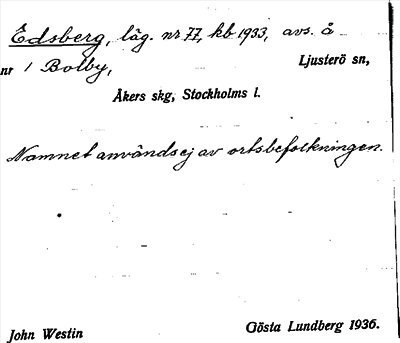 Edsberg, läg. nr 77, kb 1933, avs. å
nr 1 Bolby, Ljusterö sn,
Åkers skg, Stockholms l.
Namnet användes ej av ortsbefolkningen.
John Westin Gösta Lundberg 1936.